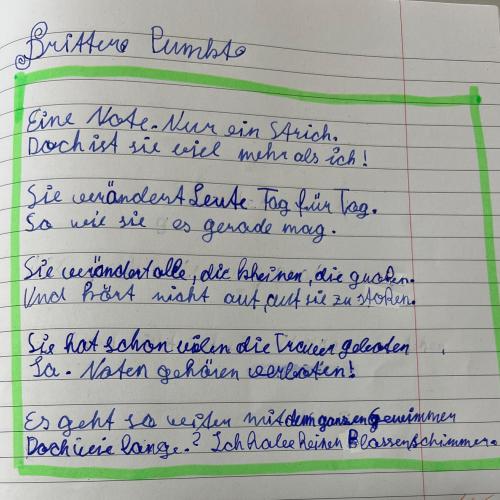 Dritter Pumkt
Eine Note. Nur ein Strich.
Doch ist sie viel mehr als ich!
Sie verändert Leute Tag für Tag.
So wie sie es gerade mag.
Sie verändert alle, die kheinen, die großen.
Und hört nicht auf, auf sie zu stoßen.
Sie hat schon vilen die Trauer geboten
Ja. Noten gehören verboten!
Es geht so weiter mit dem ganzen Gewimmer
Doch wie lange.? Ich habe keinen Blassenschimmer.